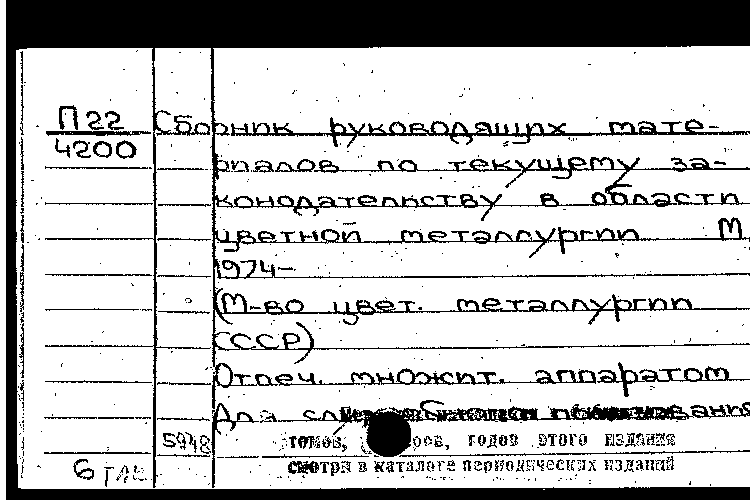 П22 Сборник руководящих мате-
4200 риалов по текущему за-
конодательству в области
цветной металлургии М.
1974-
(М-во цвет. металлургии
СССР)
Отпеч. множит. аппаратом
Для
5948 томов, годов этого издания
6 смотри в каталоге периодических изданий